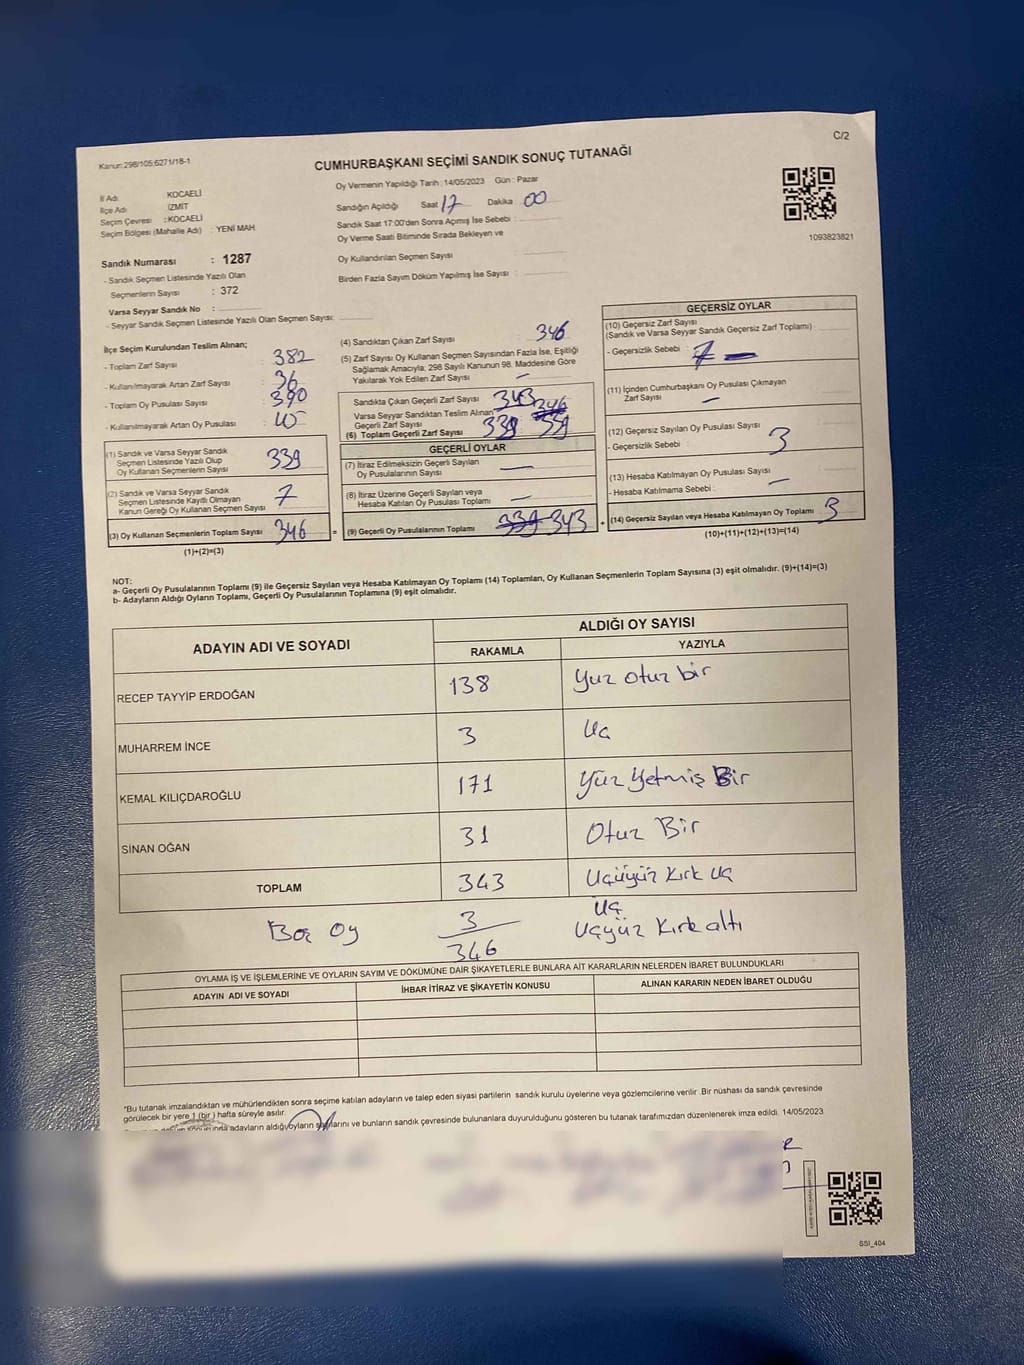 Kanun:298/105;6271/18-1
C/2
CUMHURBAŞKANI SEÇİMİ SANDIK SONUÇ TUTANAĞI
İl Adı : KOCAELİ
İlçe Adı : İZMİT
Seçim Çevresi : KOCAELİ
Seçim Bölgesi (Mahalle Adı) : YENİ MAH.
Sandık Numarası : 1287
- Sandık Seçmen Listesinde Yazılı Olan
Seçmenlerin Sayısı : 372
Varsa Seyyar Sandık No :
- Seyyar Sandık Seçmen Listesinde Yazılı Olan Seçmen Sayısı:
Oy Vermenin Yapıldığı Tarih : 14/05/2023 Gün : Pazar
Sandığın Açıldığı Saat 17 Dakika 00
Sandık Saat 17:00'den Sonra Açılmış İse Sebebi :
Oy Verme Saati Bitiminde Sırada Bekleyen ve
Oy Kullandırılan Seçmen Sayısı :
Birden Fazla Sayım Döküm Yapılmış İse Sayısı :
1093823821
İlçe Seçim Kurulundan Teslim Alınan;
- Toplam Zarf Sayısı : 382
- Kullanılmayarak Artan Zarf Sayısı : 36
- Toplam Oy Pusulası Sayısı : 390
- Kullanılmayarak Artan Oy Pusulası :
(1) Sandık ve Varsa Seyyar Sandık
Seçmen Listesinde Yazılı Olup
Oy Kullanan Seçmenlerin Sayısı 339
(2) Sandık ve Varsa Seyyar Sandık
Seçmen Listesinde Kayıtlı Olmayan
Kanun Gereği Oy Kullanan Seçmen Sayısı 7
(3) Oy Kullanan Seçmenlerin Toplam Sayısı 346
(1)+(2)=(3)
(4) Sandıktan Çıkan Zarf Sayısı 346
(5) Zarf Sayısı Oy Kullanan Seçmen Sayısından Fazla İse, Eşitliği
Sağlamak Amacıyla; 298 Sayılı Kanunun 98. Maddesine Göre
Yakılarak Yok Edilen Zarf Sayısı : —
Sandıkta Çıkan Geçerli Zarf Sayısı : 343
Varsa Seyyar Sandıktan Teslim Alınan
Geçerli Zarf Sayısı 346
(6) Toplam Geçerli Zarf Sayısı 339 339
GEÇERLİ OYLAR
(7) İtiraz Edilmeksizin Geçerli Sayılan
Oy Pusulalarının Sayısı —
(8) İtiraz Üzerine Geçerli Sayılan veya
Hesaba Katılan Oy Pusulası Toplamı —
= (9) Geçerli Oy Pusulalarının Toplamı 339 343 +
GEÇERSİZ OYLAR
(10) Geçersiz Zarf Sayısı
(Sandık ve Varsa Seyyar Sandık Geçersiz Zarf Toplamı)
- Geçersizlik Sebebi : 7 —
(11) İçinden Cumhurbaşkanı Oy Pusulası Çıkmayan
Zarf Sayısı —
(12) Geçersiz Sayılan Oy Pusulası Sayısı
- Geçersizlik Sebebi : 3
(13) Hesaba Katılmayan Oy Pusulası Sayısı
- Hesaba Katılmama Sebebi : —
(14) Geçersiz Sayılan veya Hesaba Katılmayan Oy Toplamı 3
(10)+(11)+(12)+(13)=(14)
NOT:
a- Geçerli Oy Pusulalarının Toplamı (9) ile Geçersiz Sayılan veya Hesaba Katılmayan Oy Toplamı (14) Toplamları, Oy Kullanan Seçmenlerin Toplam Sayısına (3) eşit olmalıdır. (9)+(14)=(3)
b- Adayların Aldığı Oyların Toplamı, Geçerli Oy Pusulalarının Toplamına (9) eşit olmalıdır.
ADAYIN ADI VE SOYADI ALDIĞI OY SAYISI
RAKAMLA YAZIYLA
RECEP TAYYİP ERDOĞAN 138 Yuz otuz bir
MUHARREM İNCE 3 Uç
KEMAL KILIÇDAROĞLU 171 Yüz Yetmiş Bir
SİNAN OĞAN 31 Otuz Bir
TOPLAM 343 Uçüyüz Kırk Uç
Boş Oy 3 Üç
346 Uçyüz Kırk altı
OYLAMA İŞ VE İŞLEMLERİNE VE OYLARIN SAYIM VE DÖKÜMÜNE DAİR ŞİKAYETLERLE BUNLARA AİT KARARLARIN NELERDEN İBARET BULUNDUKLARI
ADAYIN ADI VE SOYADI İHBAR İTİRAZ VE ŞİKAYETİN KONUSU ALINAN KARARIN NEDEN İBARET OLDUĞU
*Bu tutanak imzalandıktan ve mühürlendikten sonra seçime katılan adayların ve talep eden siyasi partilerin sandık kurulu üyelerine veya gözlemcilerine verilir. Bir nüshası da sandık çevresinde
görülecek bir yere 1 (bir) hafta süreyle asılır.
adayların aldığı oyların sayılarını ve bunların sandık çevresinde bulunanlara duyurulduğunu gösteren bu tutanak tarafımızdan düzenlenerek imza edildi. 14/05/2023
SSI_404